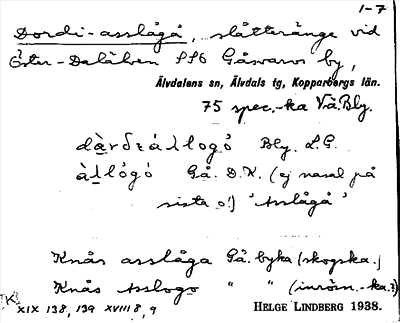 1-7
Dordi-asslågå, slåtteränge vid
Öster-Dalälven SSO Gåsvarvs by,
Älvdalens sn, Älvdals tg, Kopparbergs län.
75 spec.-ka Vå. Bly.
Bly. L.G.
Gå. D.K. (ej nasal på
sista o!) 'Asslågå'
Knås asslåga Gå. byka (skogska.)
Knås Asslogo " " (inröm.-ka.?)
K
XIX 138, 139 XVIII 8, 9
HELGE LINDBERG 1938.